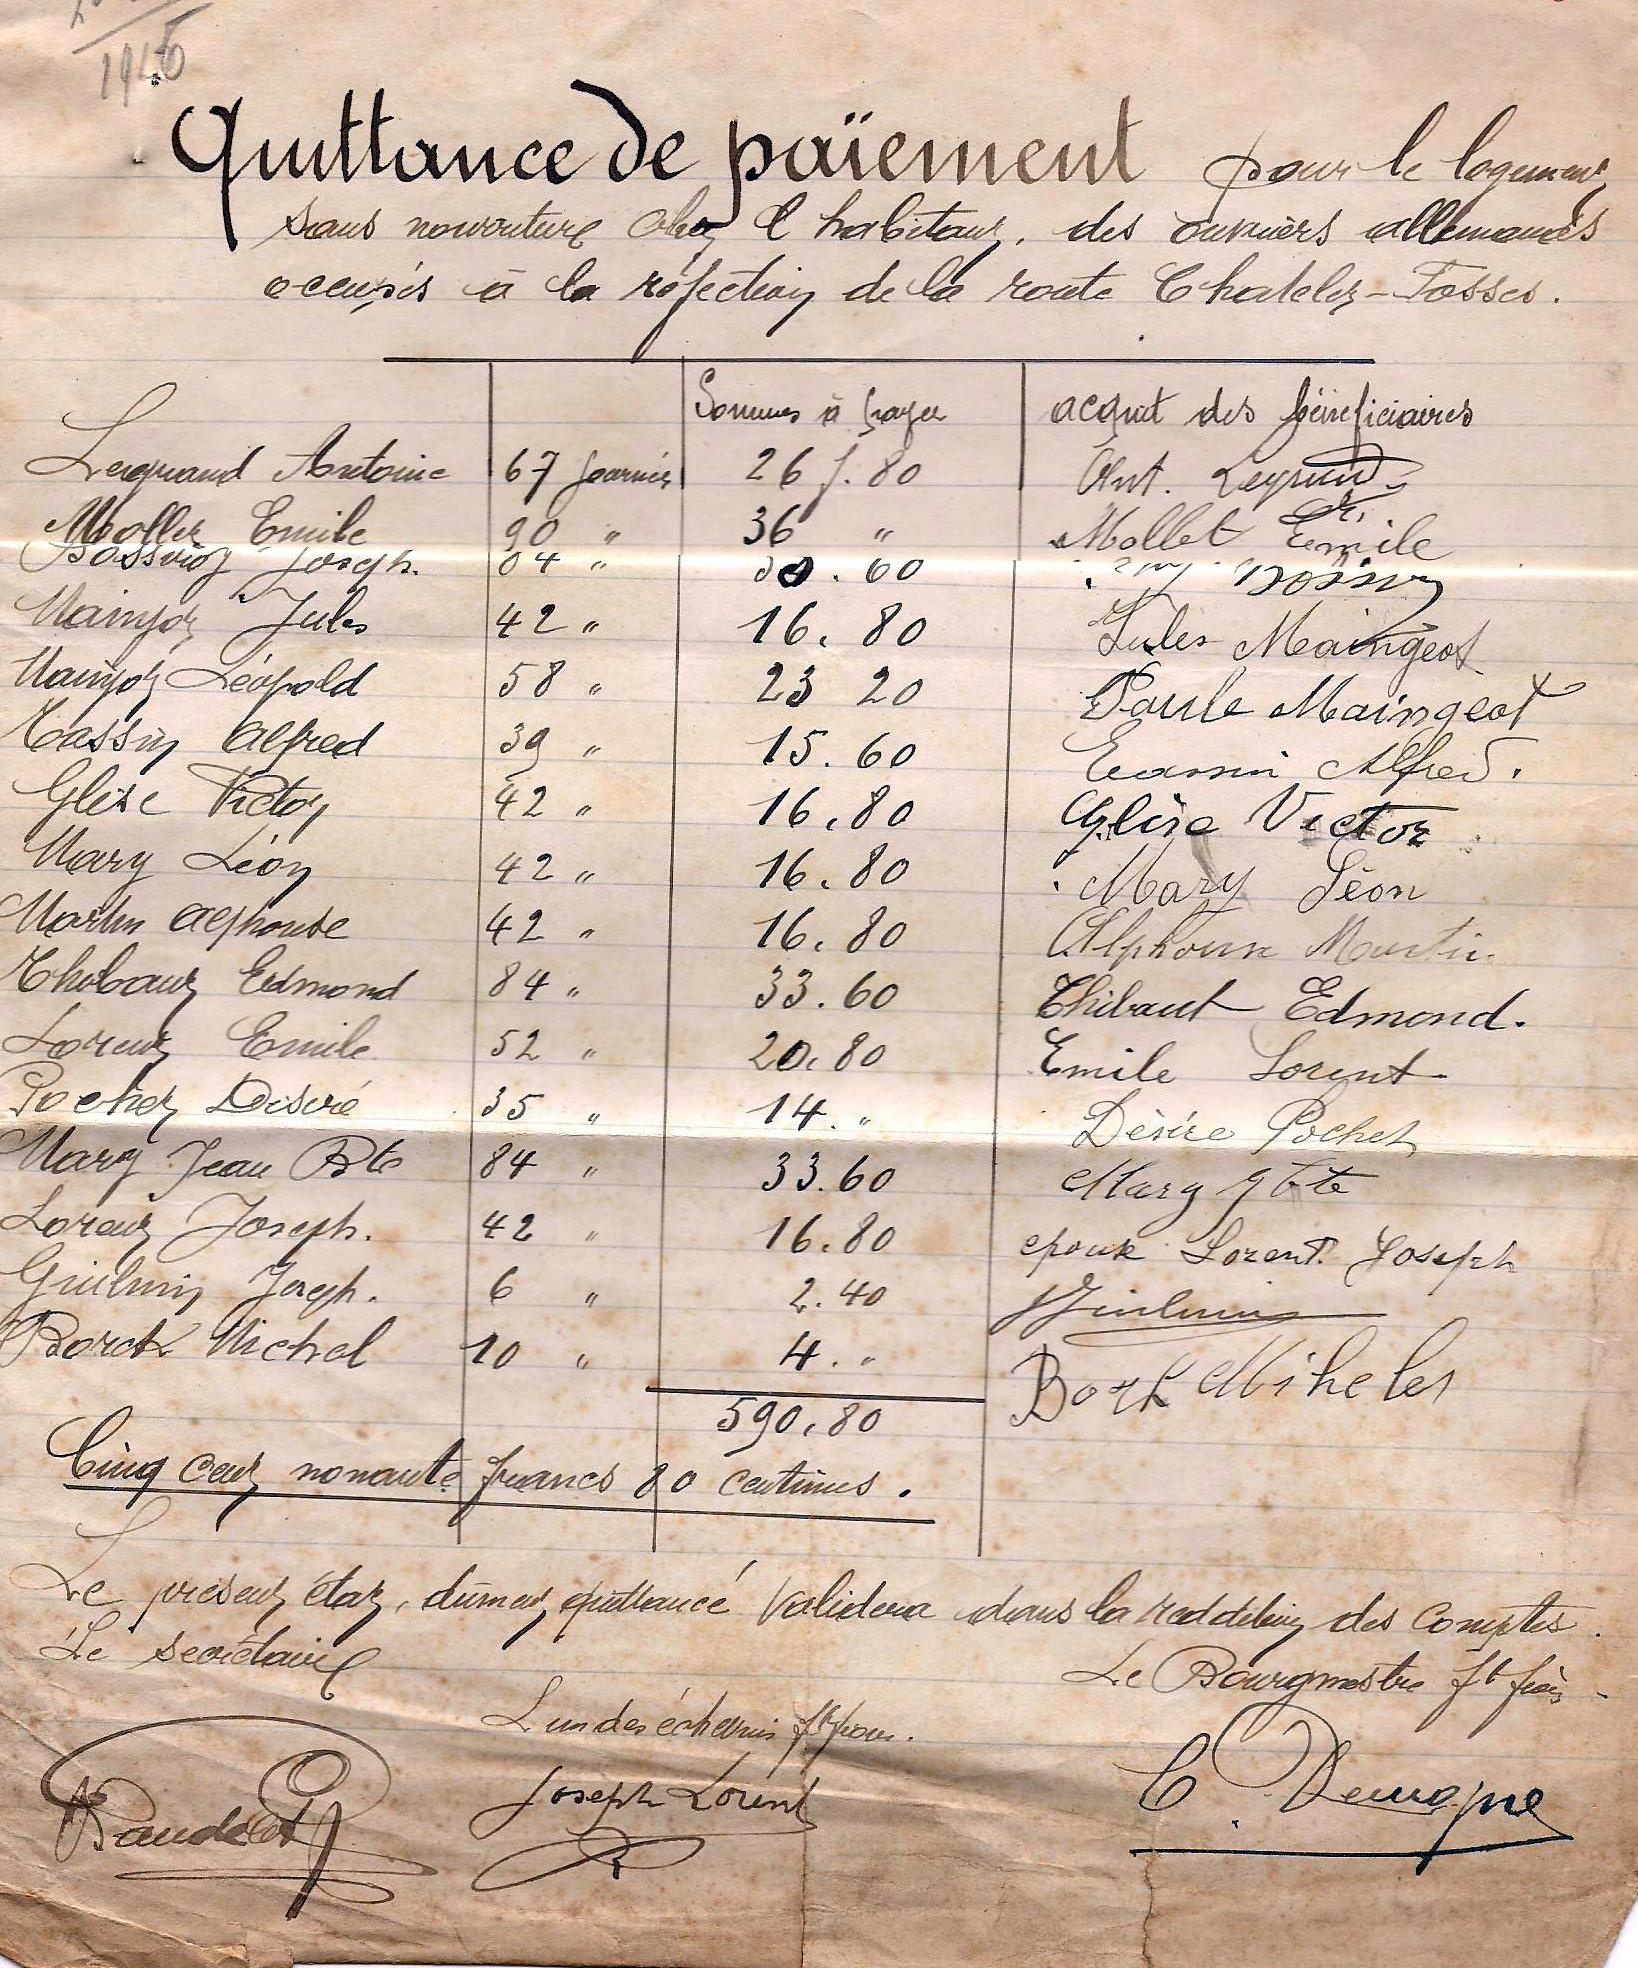 1945
Quittance de païement pour le logement
sans nourriture chez l'habitant, des ouvriers allemands
occupés à la réfection de la route Chatelet-Fosses.
Sommes à payer acquit des bénéficiaires
Legrand Antoine 67 journées 26 f. 80 Ant. Legrand
Mollet Emile 90 " 36 " Mollet Emile
Bossiroy Joseph. 84 " 60
Mainjot Jules 42 " 16. 80 Jules Maingeot
Mainjot Léopold 58 " 23 20 Paule Maingeot
Tassin Alfred 39 " 15. 60 Tassin Alfred.
Glise Victor 42 " 16. 80 Glise Victor
Mary Léon 42 " 16. 80 Mary Léon
Martin Alphonse 42 " 16. 80 Alphonse Martin.
Thibaut Edmond 84 " 33. 60 Thibaut Edmond.
Lorent Emile 52 " 20. 80 Emile Lorent
Pochet Désiré 35 " 14. " Désire Pochet
Mary Jean Bte 84 " 33. 60 Mary J Bte
Lorent Joseph. 42 " 16. 80 epouse Lorent. Joseph
Guilmin Joseph. 6 " 2. 40 J Guilmin
Borck Michel 10 " 4. "
590,80
Cinq cent nonante francs 80 centimes.
Le présent état, dûment quittancé validera dans la reddition des comptes.
Le secrétaire Le Bourgmestre
L'un des échevins
Joseph Lorent